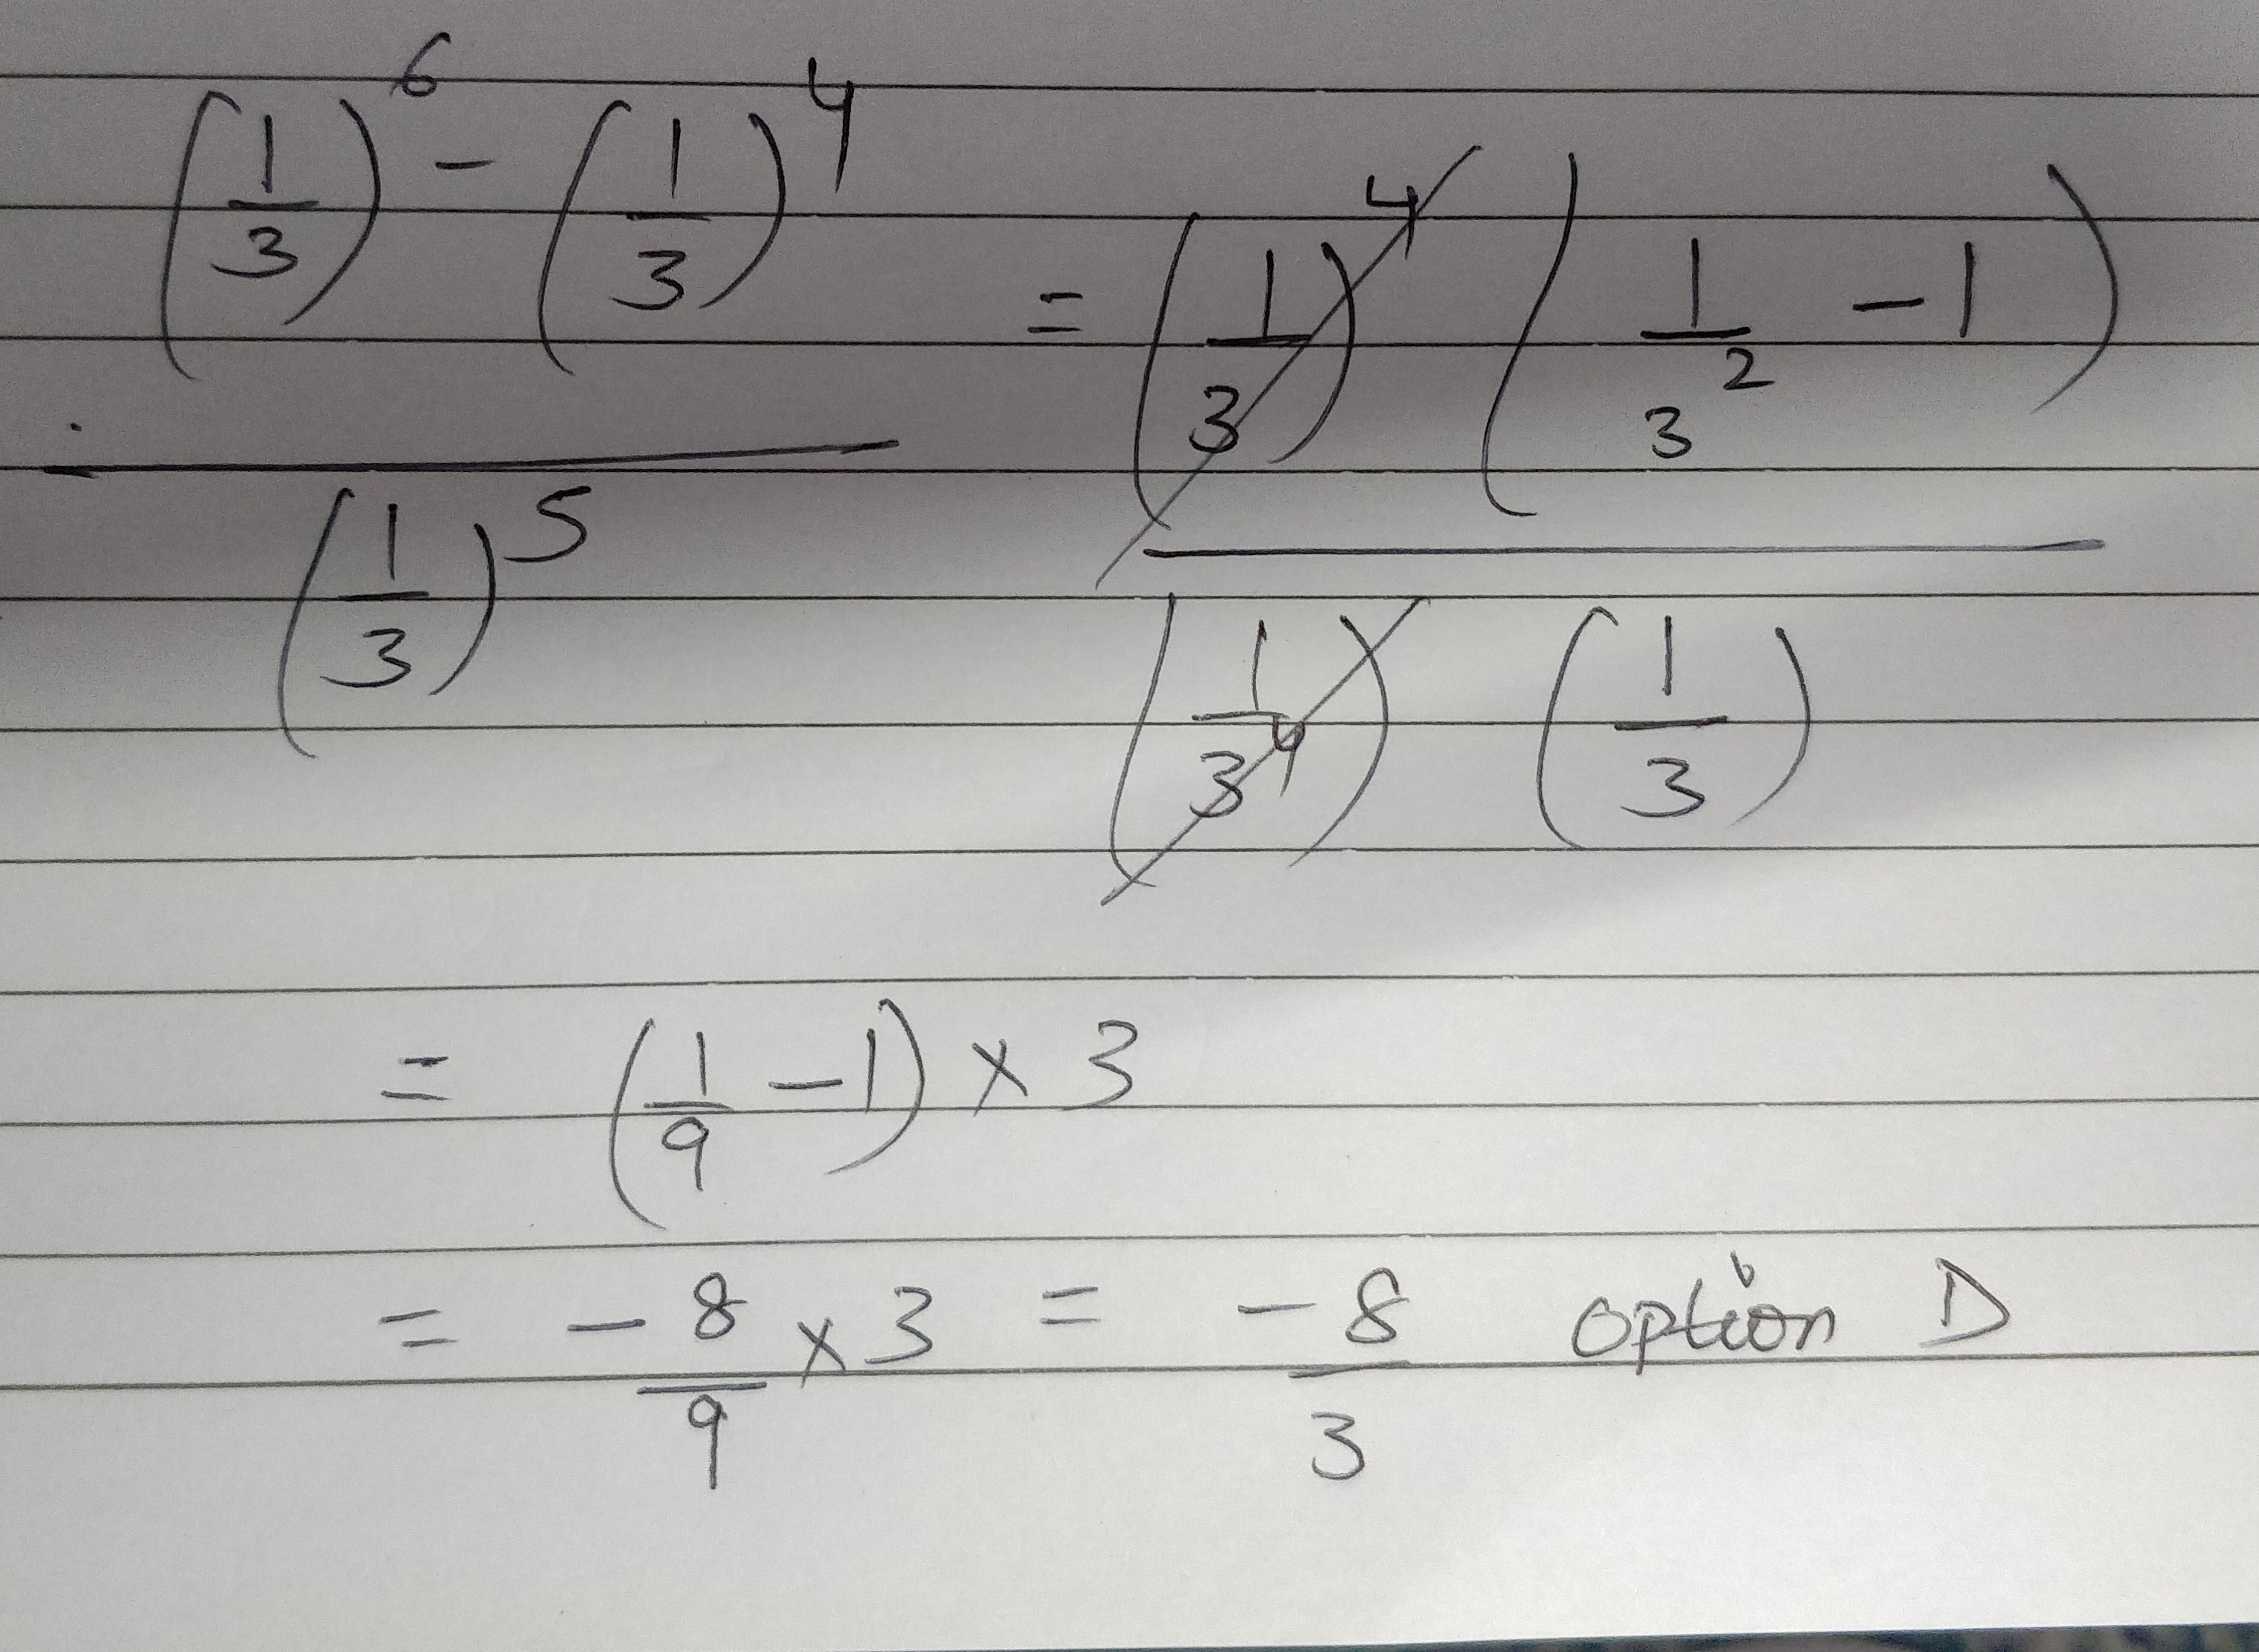 ((1/3)^6 - (1/3)^4) / (1/3)^5 = ((1/3)^4 (1/3^2 - 1)) / ((1/3^4) (1/3))
= (1/9 - 1) × 3
= -8/9 × 3 = -8/3 option D